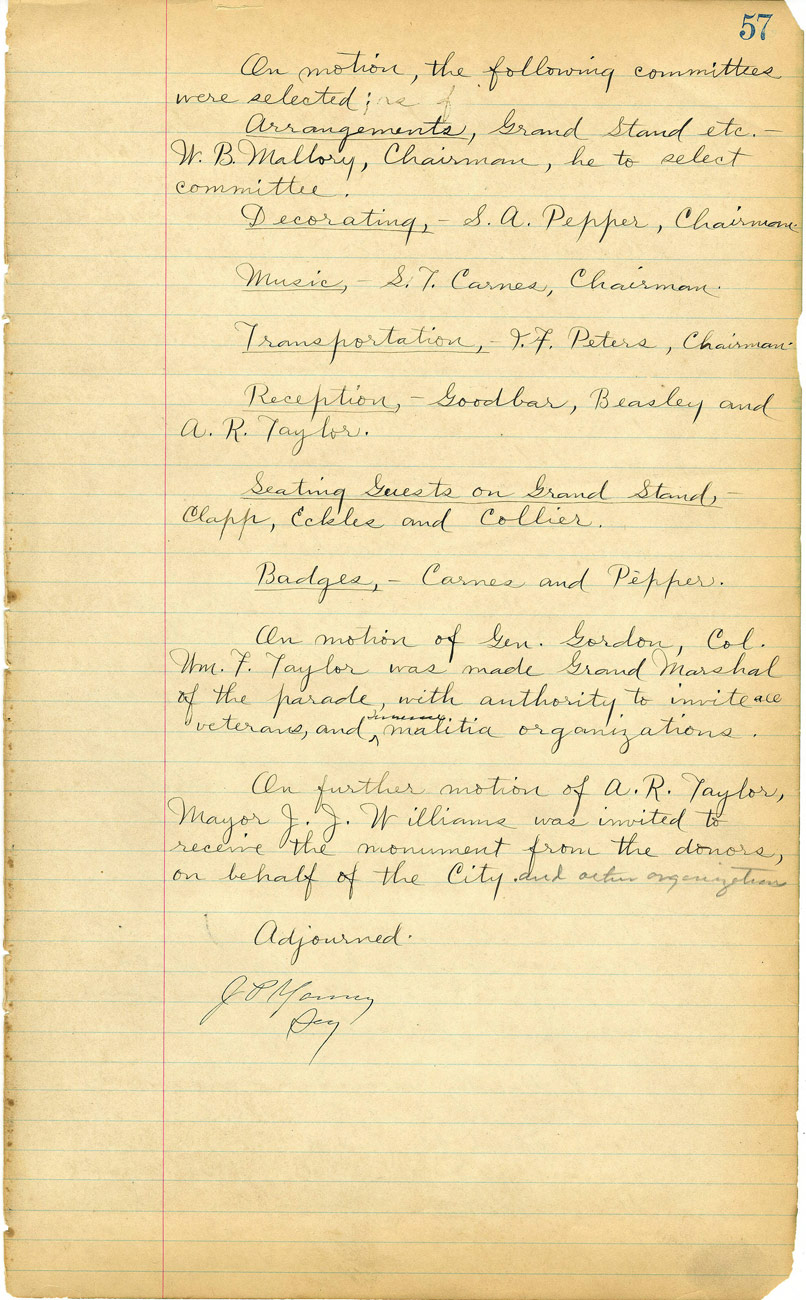 57
On motion, the following committees
were selected;
Arrangements, Grand Stand etc.—
W. B. Mallory, Chairman, he to select
committee.
Decorating,— S. A. Pepper, Chairman.
Music,— S. T. Carnes, Chairman.
Transportation,— I. F. Peters, Chairman.
Reception,— Goodbar, Beasley and
A. R. Taylor.
Seating Guests on Grand Stand,—
Clapp, Eckles and Collier.
Badges,— Carnes and Pepper.
On motion of Gen. Gordon, Col.
Wm. F. Taylor was made Grand Marshal
of the parade, with authority to invite all
veterans, and malitia organizations.
On further motion of A. R. Taylor,
Mayor J. J. Williams was invited to
receive the monument from the donors,
on behalf of the City. and other organizations
Adjourned.
J P Young
Secy